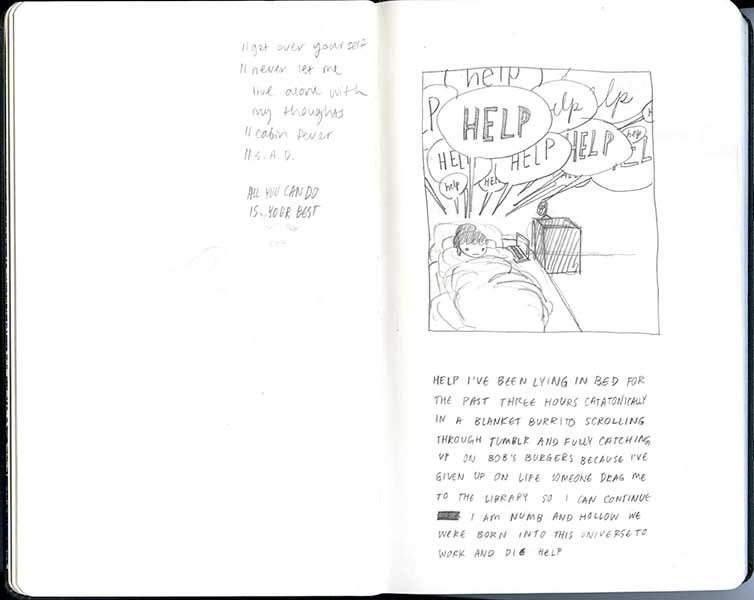 // get over yourself
// never let me
live alone with
my thoughts
// cabin fever
// S.A.D.
ALL YOU CAN DO
IS YOUR BEST
help
HELP
help
help
HELP
HELP
HELP
help
help
HEL
HELP I'VE BEEN LYING IN BED FOR
THE PAST THREE HOURS CATATONICALLY
IN A BLANKET BURRITO SCROLLING
THROUGH TUMBLR AND FULLY CATCHING
UP ON BOB'S BURGERS BECAUSE I'VE
GIVEN UP ON LIFE SOMEONE DRAG ME
TO THE LIBRARY SO I CAN CONTINUE
I AM NUMB AND HOLLOW WE
WERE BORN INTO THIS UNIVERSE TO
WORK AND DIE HELP